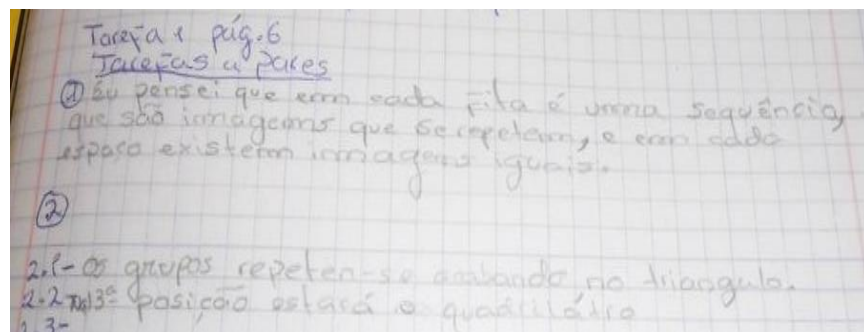 Tarefa 1 pág.6
Tarefas a pares
① Eu pensei que em cada fita é uma sequência,
que são imagens que se repetem, e em cada
espaço existem imagens iguais.
②
2.1- os grupos repeten-se acabando no triangulo.
2.2 na 13ª posição estará o quadrilátro
2.3-